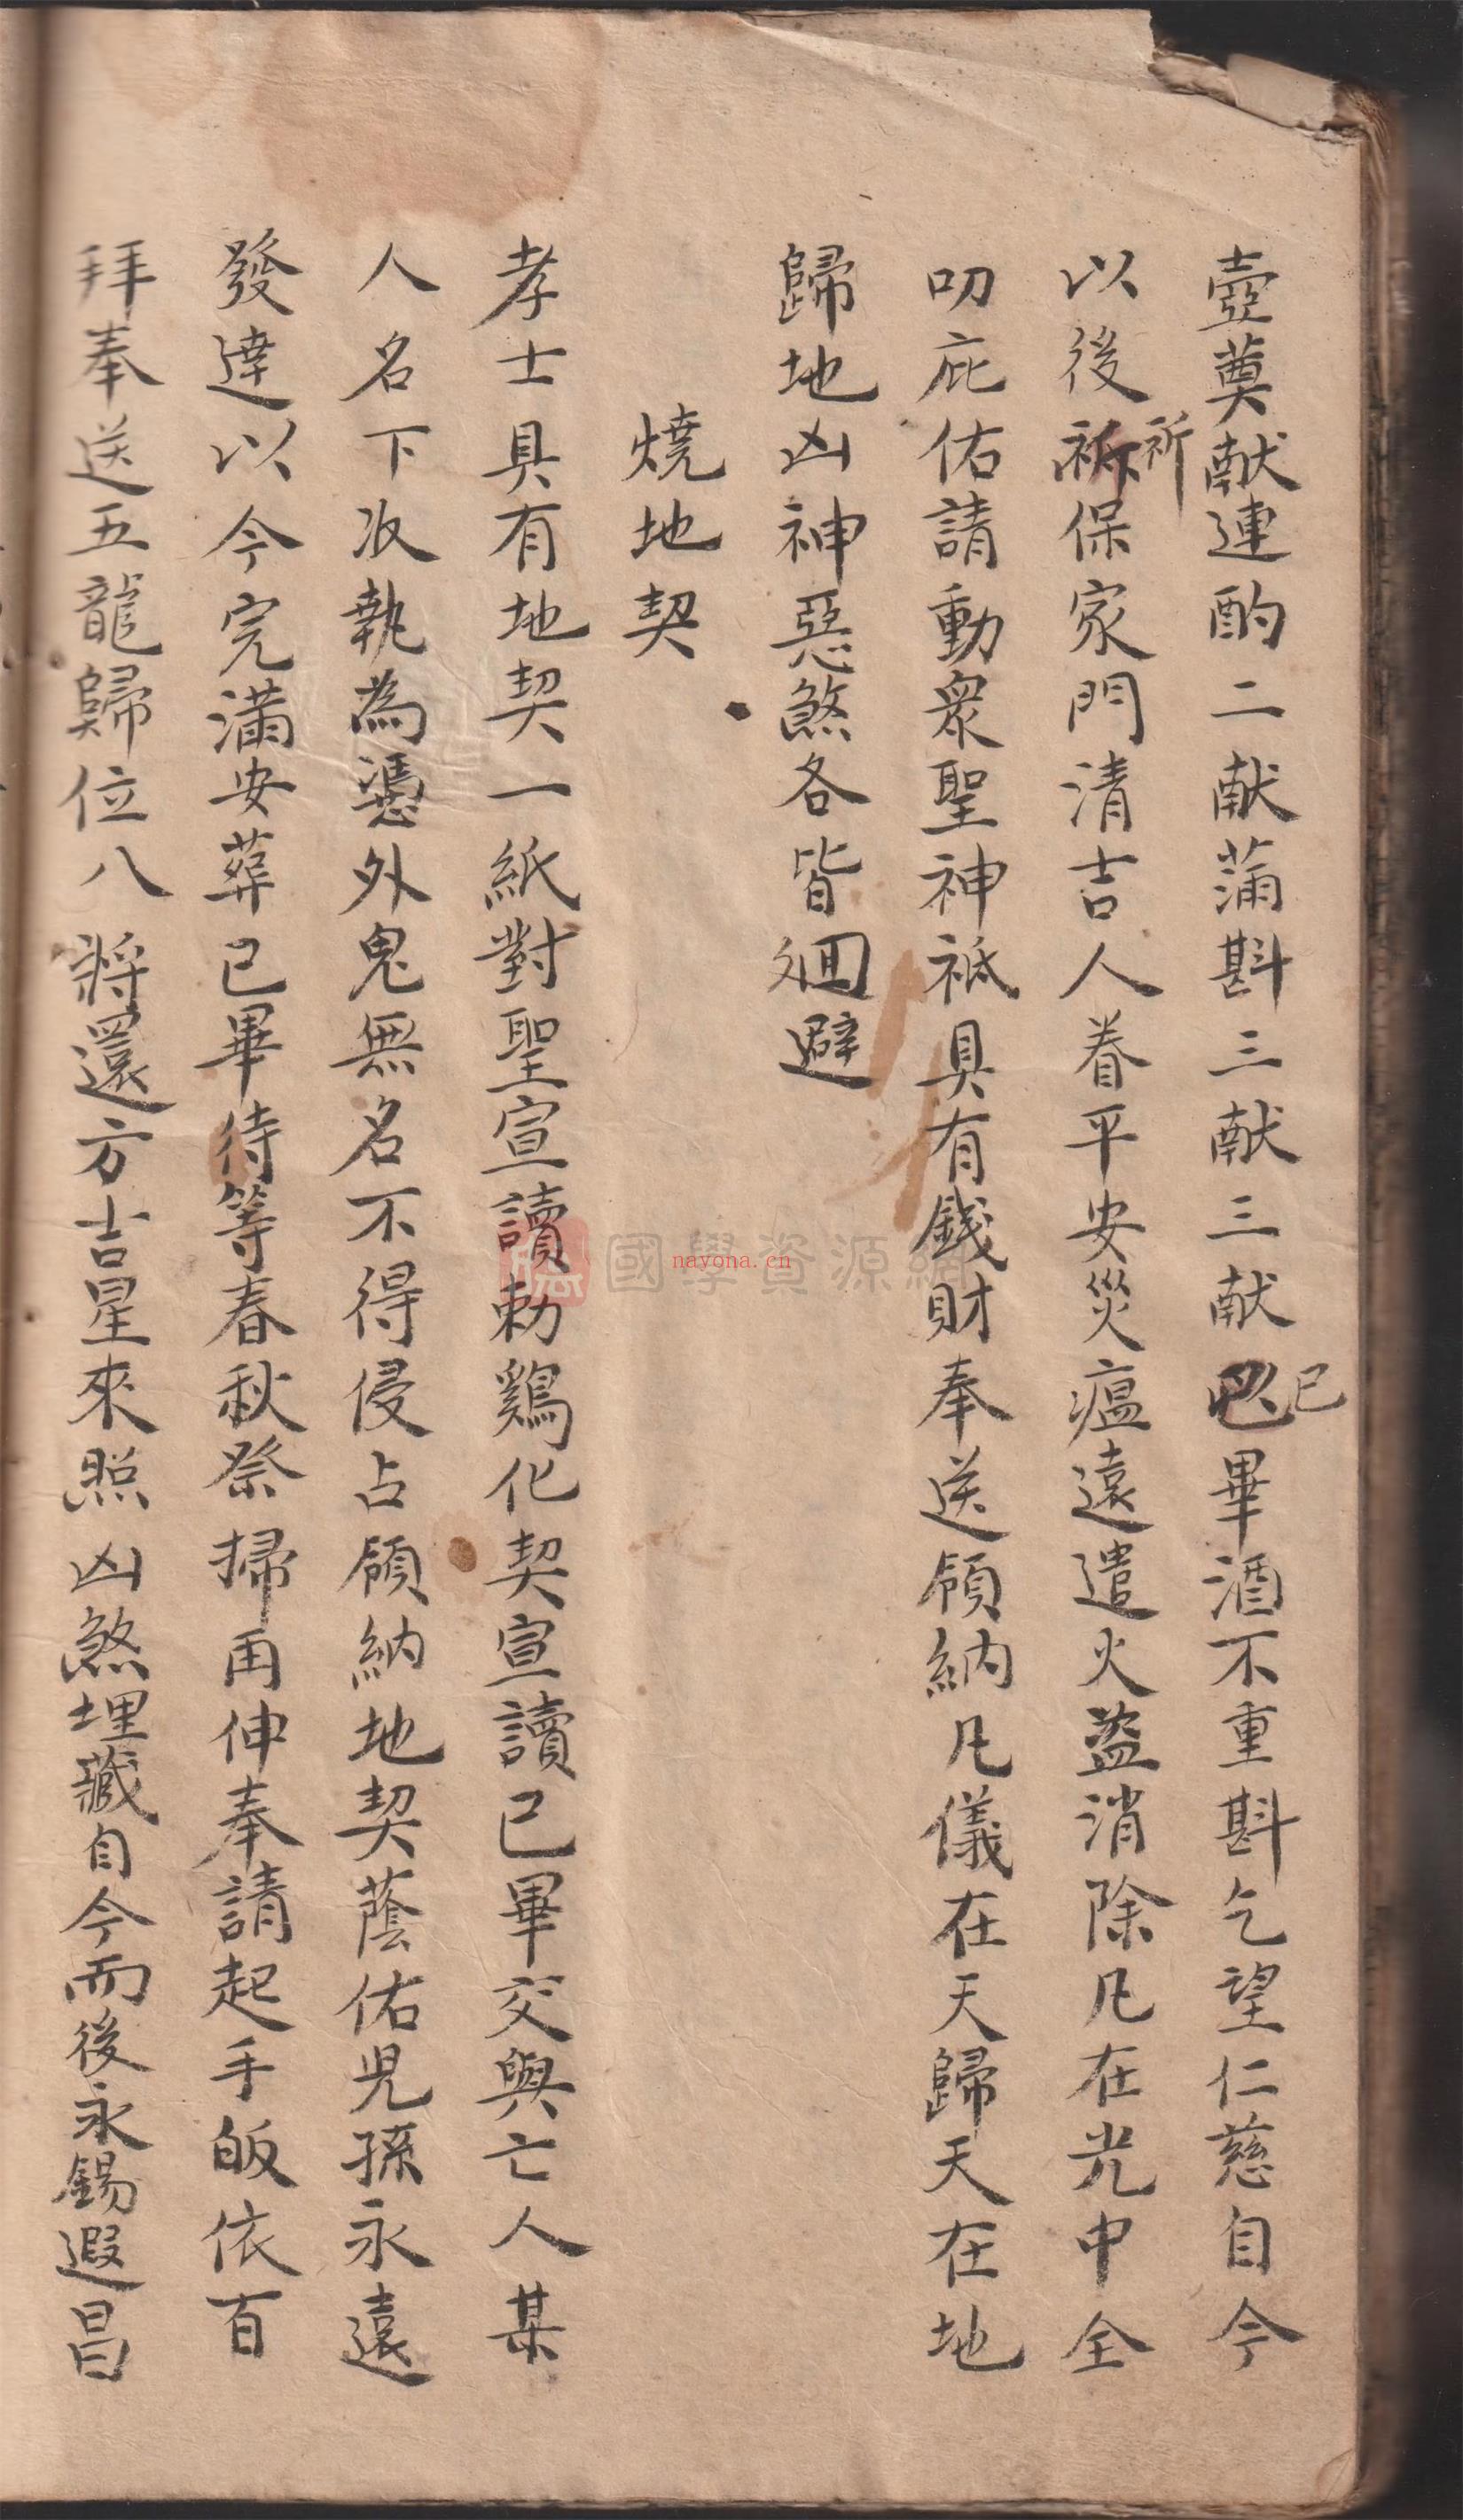 壺奠献連酌二献蒲斟三献三献已畢酒不重斟乞望仁慈自今
已
以後祈保家門清吉人眷平安災瘟遠遣火盗消除凡在光中全
祈
叨庇佑請動衆聖神祇具有錢財奉送領納凡儀在天歸天在地
歸地凶神惡煞各皆廻避
燒地契
孝士具有地契一紙對聖宣讀勅鷄化契宣讀已畢交與亡人某
人名下收執為憑外鬼無名不得侵占領納地契蔭佑児孫永遠
發達以今完滿安葬已畢待等春秋祭掃再伸奉請起手皈依百
拜奉送五龍歸位八將還方吉星來照凶煞埋藏自今而後永錫遐昌
國學資源網
nayona.cn